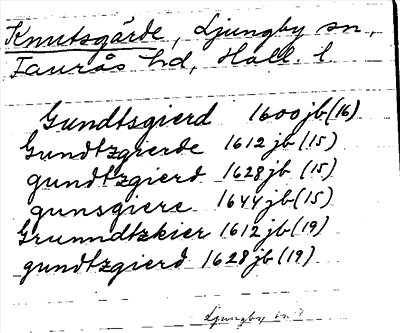 Knutsgärde, Ljungby sn,
Faurås hd, Hall. l.
Gundtsgierd 1600 jb (16)
Gundtzgierde 1612 jb (15)
gundtzgierd 1628 jb (15)
gunsgiere 1644 jb (15)
Grunndtzkier 1612 jb (19)
gundtzgierd 1628 jb (19)
Ljungby sn